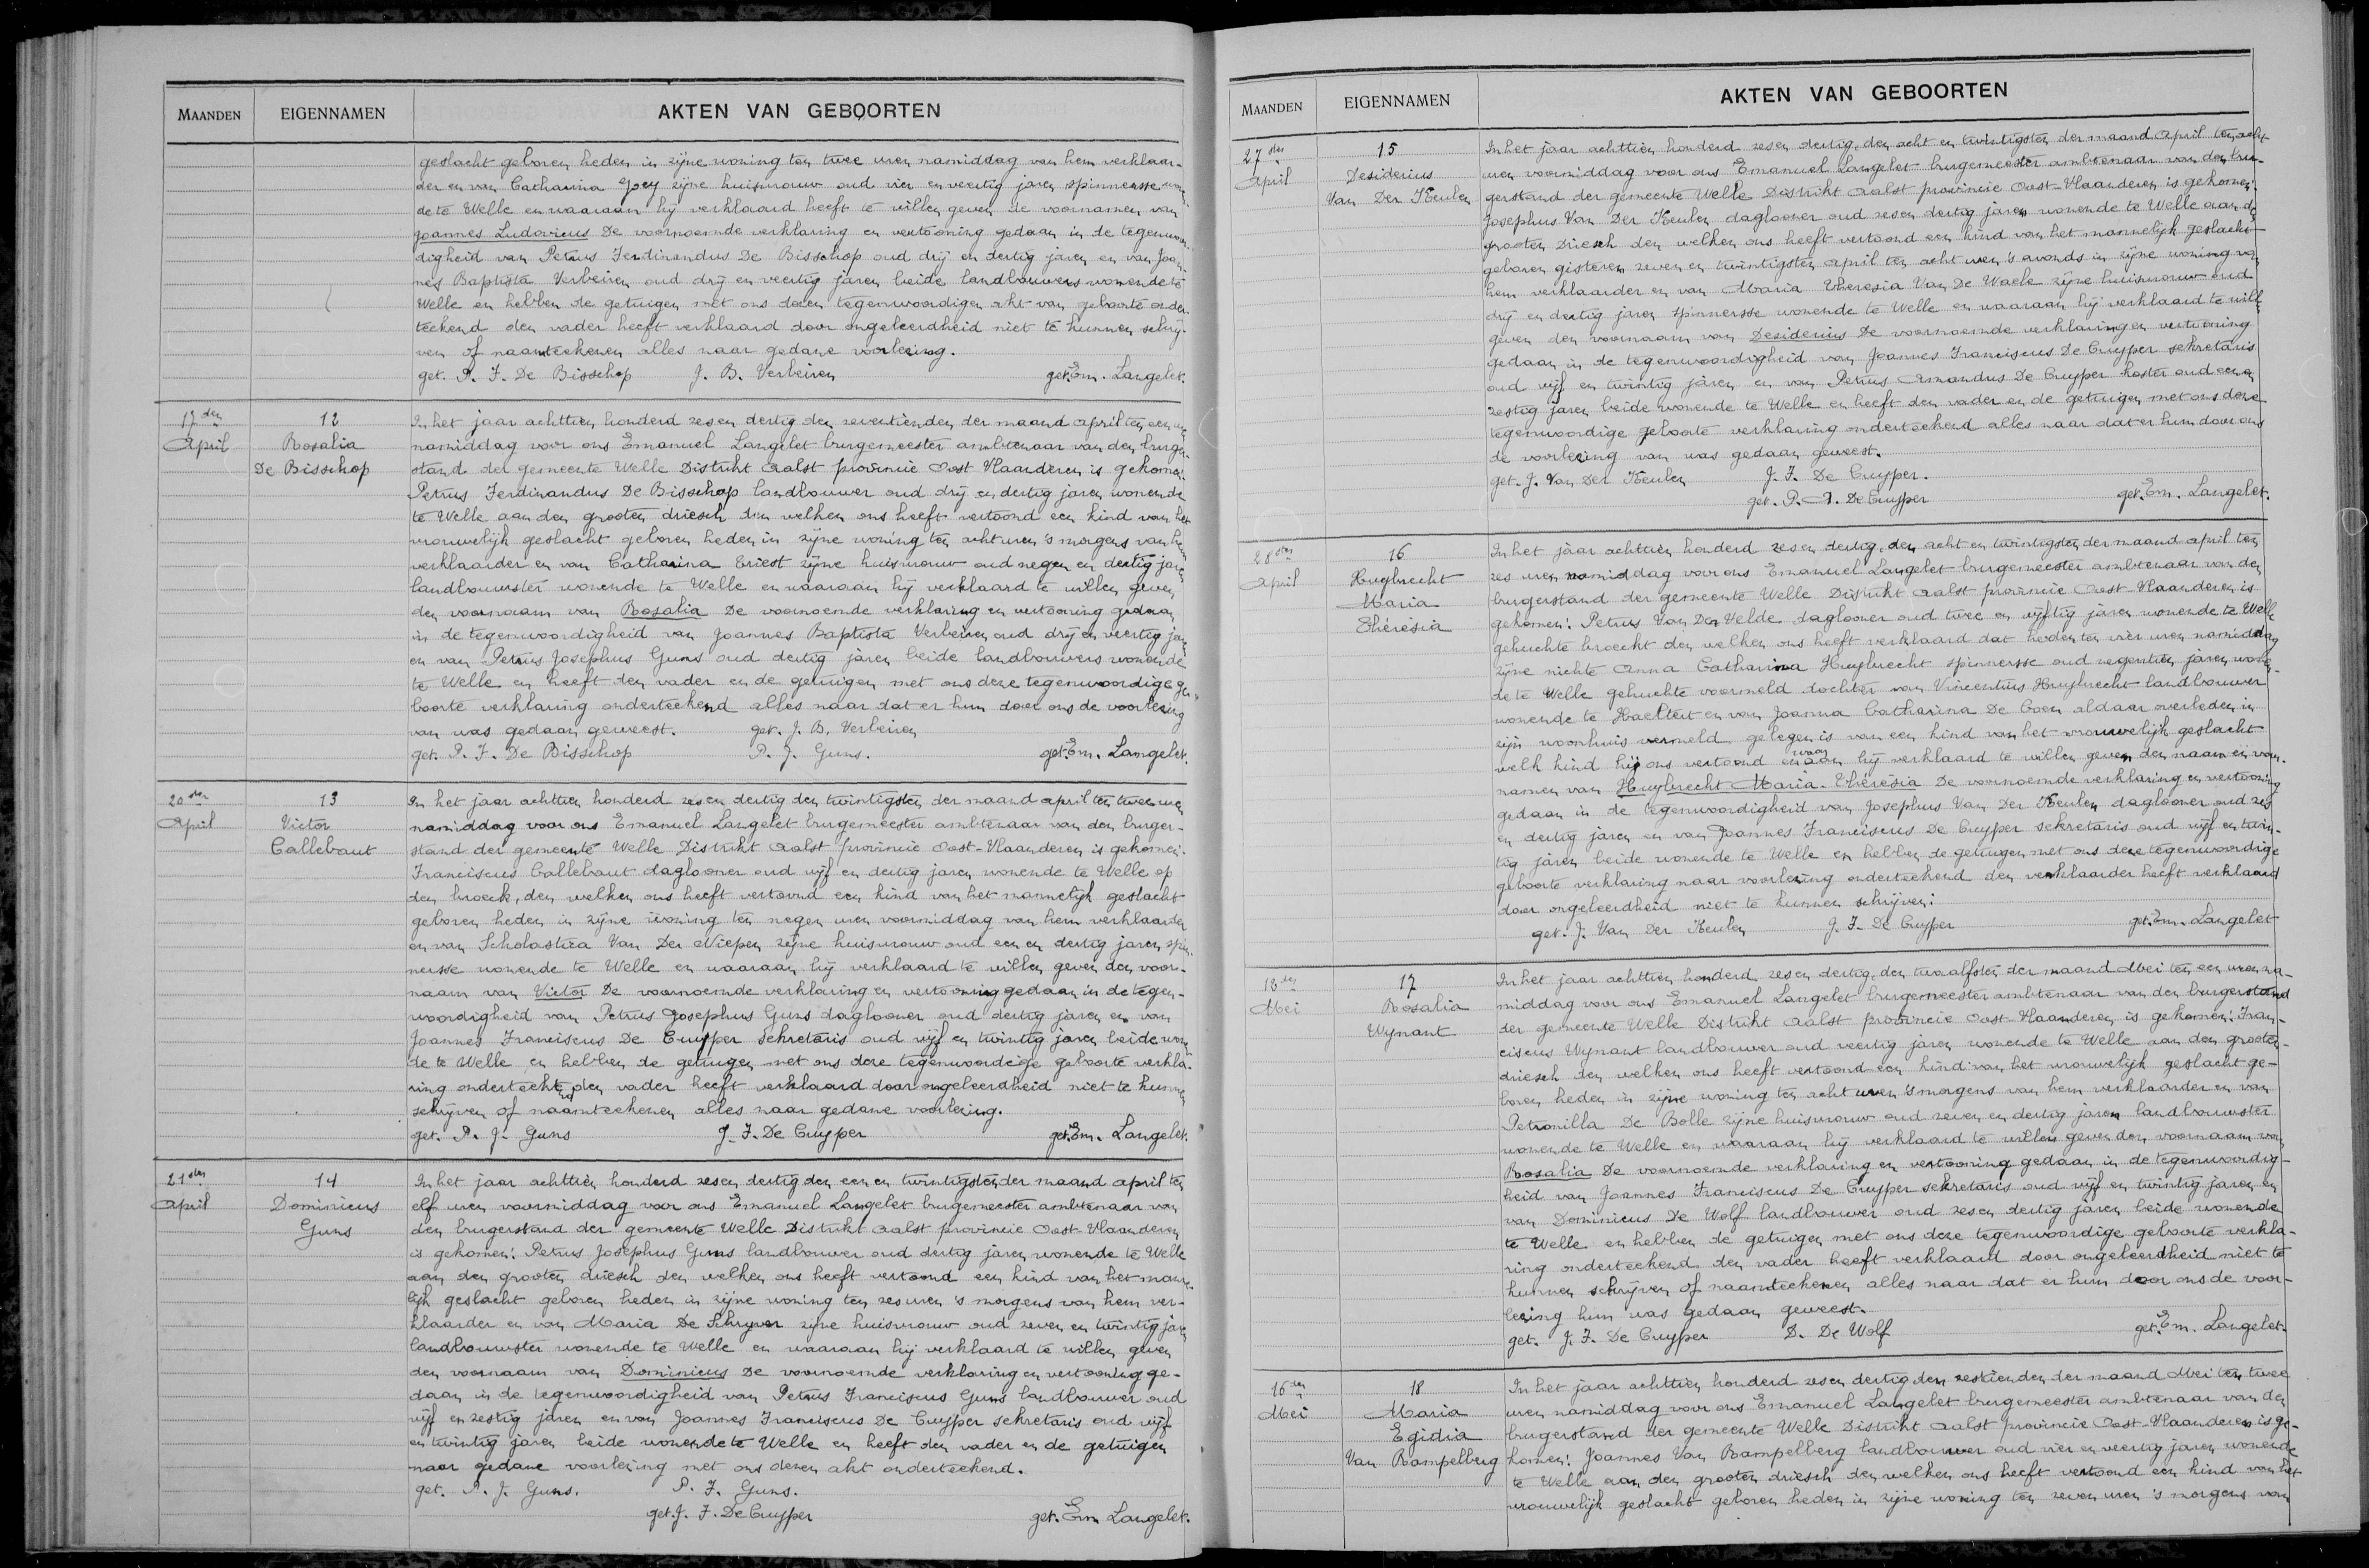 MAANDEN
EIGENNAMEN
AKTEN VAN GEBOORTEN
geslacht geboren heden in zijne woning ten twee uren namiddag van hem verklaar-
der en van Catharina Joey zijne huisvrouw oud vier en veertig jaren spinnersse wonen-
de te Welle en waaraan hij verklaard heeft te willen geven de voornamen van
Joannes Ludovicus De voornoemde verklaring en vertooning gedaan in de tegenwoor-
digheid van Petrus Ferdinandus De Bisschop oud drij en dertig jaren en van Joan-
nes Baptista Verbeiren oud drij en veertig jaren beide landbouwers wonende te
Welle en hebben de getuigen met ons dezen tegenwoordigen akt van geboorte onder-
teekend den vader heeft verklaard door ongeleerdheid niet te kunnen schrij-
ven of naamteekenen alles naar gedane voorlezing.
get. P. F. De Bisschop J. B. Verbeiren get. Em. Langelet.
17den
April
12
Rosalia
De Bisschop
In het jaar achttien honderd zes en dertig den zeventienden der maand April ten een ure
namiddag voor ons Emanuel Langelet burgemeester ambtenaar van den burger-
stand der gemeente Welle Distrikt Aalst provincie Oost Vlaanderen is gekomen:
Petrus Ferdinandus De Bisschop landbouwer oud drij en dertig jaren wonende
te Welle aan den grooten driesch den welken ons heeft vertoond een kind van het
vrouwelijk geslacht geboren heden in zijne woning ten acht uren 's morgens van hem
verklaarder en van Catharina Triest zijne huisvrouw oud negen en dertig jaren
landbouwster wonende te Welle en waaraan hij verklaard te willen geven
den voornaam van Rosalia De voornoemde verklaring en vertooning gedaan
in de tegenwoordigheid van Joannes Baptista Verbeiren oud drij en veertig jaren
en van Petrus Josephus Guns oud dertig jaren beide landbouwers wonende
te Welle en heeft den vader en de getuigen met ons deze tegenwoordige ge-
boorte verklaring onderteekend alles naar dat er hun door ons de voorlezing
van was gedaan geweest. get. J. B. Verbeiren
get. P. F. De Bisschop P. J. Guns. get. Em. Langelet.
20sten
April
13
Victor
Callebaut
In het jaar achttien honderd zes en dertig den twintigsten der maand april ten twee uren
namiddag voor ons Emanuel Langelet burgemeester ambtenaar van den burger-
stand der gemeente Welle Distrikt Aalst provincie Oost-Vlaanderen is gekomen:
Franciscus Callebaut daglooner oud vijf en dertig jaren wonende te Welle op
den broeck, den welken ons heeft vertoond een kind van het mannelijk geslacht
geboren heden in zijne woning ten negen uren voormiddag van hem verklaarder
en van Scholastica Van Der Niepen zijne huisvrouw oud een en dertig jaren spin-
nersse wonende te Welle en waaraan hij verklaard te willen geven den voor-
naam van Victor De voornoemde verklaring en vertooning gedaan in de tegen-
woordigheid van Petrus Josephus Guns daglooner oud dertig jaren en van
Joannes Franciscus De Cuyper sekretaris oud vijf en twintig jaren beide wonen-
de te Welle en hebben de getuigen met ons deze tegenwoordeige geboorte verkla-
ring onderteekend den vader heeft verklaard door ongeleerdheid niet te kunnen
schrijven of naamteekenen alles naar gedane voorlezing.
get. P. J. Guns J. F. De Cuyper get. Em. Langelet.
21sten
April
14
Dominicus
Guns
In het jaar achttien honderd zes en dertig den een en twintigsten der maand april ten
elf uren voormiddag voor ons Emanuel Langelet burgemeester ambtenaar van
den burgerstand der gemeente Welle Distrikt Aalst provincie Oost-Vlaanderen
is gekomen: Petrus Josephus Guns landbouwer oud dertig jaren wonende te Welle
aan den grooten driesch den welken ons heeft vertoond een kind van het manne-
lijk geslacht geboren heden in zijne woning ten zes uren 's morgens van hem ver-
klaarder en van Maria De Schryver zijne huisvrouw oud zeven en twintig jaren
landbouwster wonende te Welle en waaraan hij verklaard te willen geven
den voornaam van Dominicus De voornoemde verklaring en vertooning ge-
daan in de tegenwoordigheid van Petrus Franciscus Guns landbouwer oud
vijf en zestig jaren en van Joannes Franciscus De Cuyper sekretaris oud vijf
en twintig jaren beide wonende te Welle en heeft den vader en de getuigen
naar gedane voorlezing met ons dezen akt onderteekend.
get. P. J. Guns. P. F. Guns.
get. J. F. De Cuyper get. Em Langelet.
MAANDEN
EIGENNAMEN
AKTEN VAN GEBOORTEN
27sten
April
15
Desiderius
Van Der Keulen
In het jaar achttien honderd zes en dertig, den acht en twintigsten der maand April ten acht
uren voormiddag voor ons Emanuel Langelet burgemeester ambtenaar van den bur-
gerstand der gemeente Welle Distrikt Aalst provincie Oost-Vlaanderen is gekomen:
Josephus Van Der Keulen daglooner oud zes en dertig jaren wonende te Welle aan de
grooten Driesch den welken ons heeft vertoond een kind van het mannelijk geslacht
geboren gisteren zeven en twintigsten april ten acht uren 's avonds in zijne woning van
hem verklaarder en van Maria Theresia Van De Waele zijne huisvrouw oud
drij en dertig jaren spinnersse wonende te Welle en waaraan hij verklaard te willen
geven den voornaam van Desiderius De voornoemde verklaring en vertooning
gedaan in de tegenwoordigheid van Joannes Franciscus De Cuyper sekretaris
oud vijf en twintig jaren en van Petrus Amandus De Cuyper koster oud een en
zestig jaren beide wonende te Welle en heeft den vader en de getuigen met ons deze
tegenwoordige geboorte verklaring onderteekend alles naar dat er hun door ons
de voorlezing van was gedaan geweest.
get. J. Van Der Keulen J. F. De Cuyper.
get. P. A. De Cuyper get. Em. Langelet.
28sten
April
16
Huybrecht
Maria
Thérésia
In het jaar achttien honderd zes en dertig, den acht en twintigsten der maand april ten
zes uren namiddag voor ons Emanuel Langelet burgemeester ambtenaar van den
burgerstand der gemeente Welle Distrikt Aalst provincie Oost-Vlaanderen is
gekomen: Petrus Van Der Velde daglooner oud twee en vijftig jaren wonende te Welle
gehuchte broeckt den welken ons heeft verklaard dat heden ten vier uren namiddag
zijne nichte Anna Catharina Huybrecht spinnersse oud negentien jaren wonen-
de te Welle gehuchte voormeld dochter van Vincentius Huybrecht landbouwer
wonende te Haeltert en van Joanna Catharina De Coen aldaar overleden in
zijn woonhuis vermeld gelegen is van een kind van het vrouwelijk geslacht
welk kind hij ons vertoond en waaraan hij verklaard te willen geven den naam en voor-
namen van Huybrecht Maria-Theresia De voornoemde verklaring en vertooning
gedaan in de tegenwoordigheid van Josephus Van Der Keulen daglooner oud zes
en dertig jaren en van Joannes Franciscus De Cuyper sekretaris oud vijf en twin-
tig jaren beide wonende te Welle en hebben de getuigen met ons deze tegenwoordige
geboorte verklaring naar voorlezing onderteekend den verklaarder heeft verklaard
door ongeleerdheid niet te kunnen schrijven:
get. J. Van Der Keulen J. F. De Cuyper get. Em. Langelet
18den
Mei
17
Rosalia
Wynant
In het jaar achttien honderd zes en dertig, den twaalfsten der maand Mei ten een uren na-
middag voor ons Emanuel Langelet burgemeester ambtenaar van den burgerstand
der gemeente Welle Distrikt Aalst provincie Oost-Vlaanderen is gekomen: Fran-
ciscus Wynant landbouwer oud veertig jaren wonende te Welle aan den grooten-
driesch den welken ons heeft vertoond een kind van het vrouwelijk geslacht ge-
boren heden in zijne woning ten acht uren 's morgens van hem verklaarder en van
Petronilla De Bolle zijne huisvrouw oud zeven en dertig jaren landbouwster
wonende te Welle en waaraan hij verklaard te willen geven den voornaam van
Rosalia De voornoemde verklaring en vertooning gedaan in de tegenwoordig-
heid van Joannes Franciscus De Cuyper sekretaris oud vijf en twintig jaren en
van Dominicus De Wolf landbouwer oud zes en dertig jaren beide wonende
te Welle en hebben de getuigen met ons deze tegenwoordige geboorte verkla-
ring onderteekend den vader heeft verklaard door ongeleerdheid niet te
kunnen schrijven of naamteekenen alles naar dat er hun door ons de voor-
lezing hun was gedaan geweest.
get. J. F. De Cuyper D. De Wolf get. Em. Langelet.
16den
Mei
18
Maria
Egidia
Van Rampelberg
In het jaar achttien honderd zes en dertig den zestienden der maand Mei ten twee
uren namiddag voor ons Emanuel Langelet burgemeester ambtenaar van den
burgerstand der gemeente Welle Distrikt Aalst provincie Oost-Vlaanderen is ge-
komen: Joannes Van Rampelberg landbouwer oud vier en veertig jaren wonende
te Welle aan den grooten driesch den welken ons heeft vertoond een kind van het
vrouwelijk geslacht geboren heden in zijne woning ten zeven uren 's morgens van